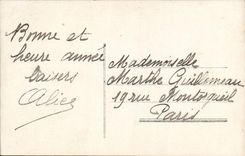 Bonne et
heure année
baisers
Alice
Mademoiselle
Marthe Guillemeau
19 rue Montorgueil
Paris